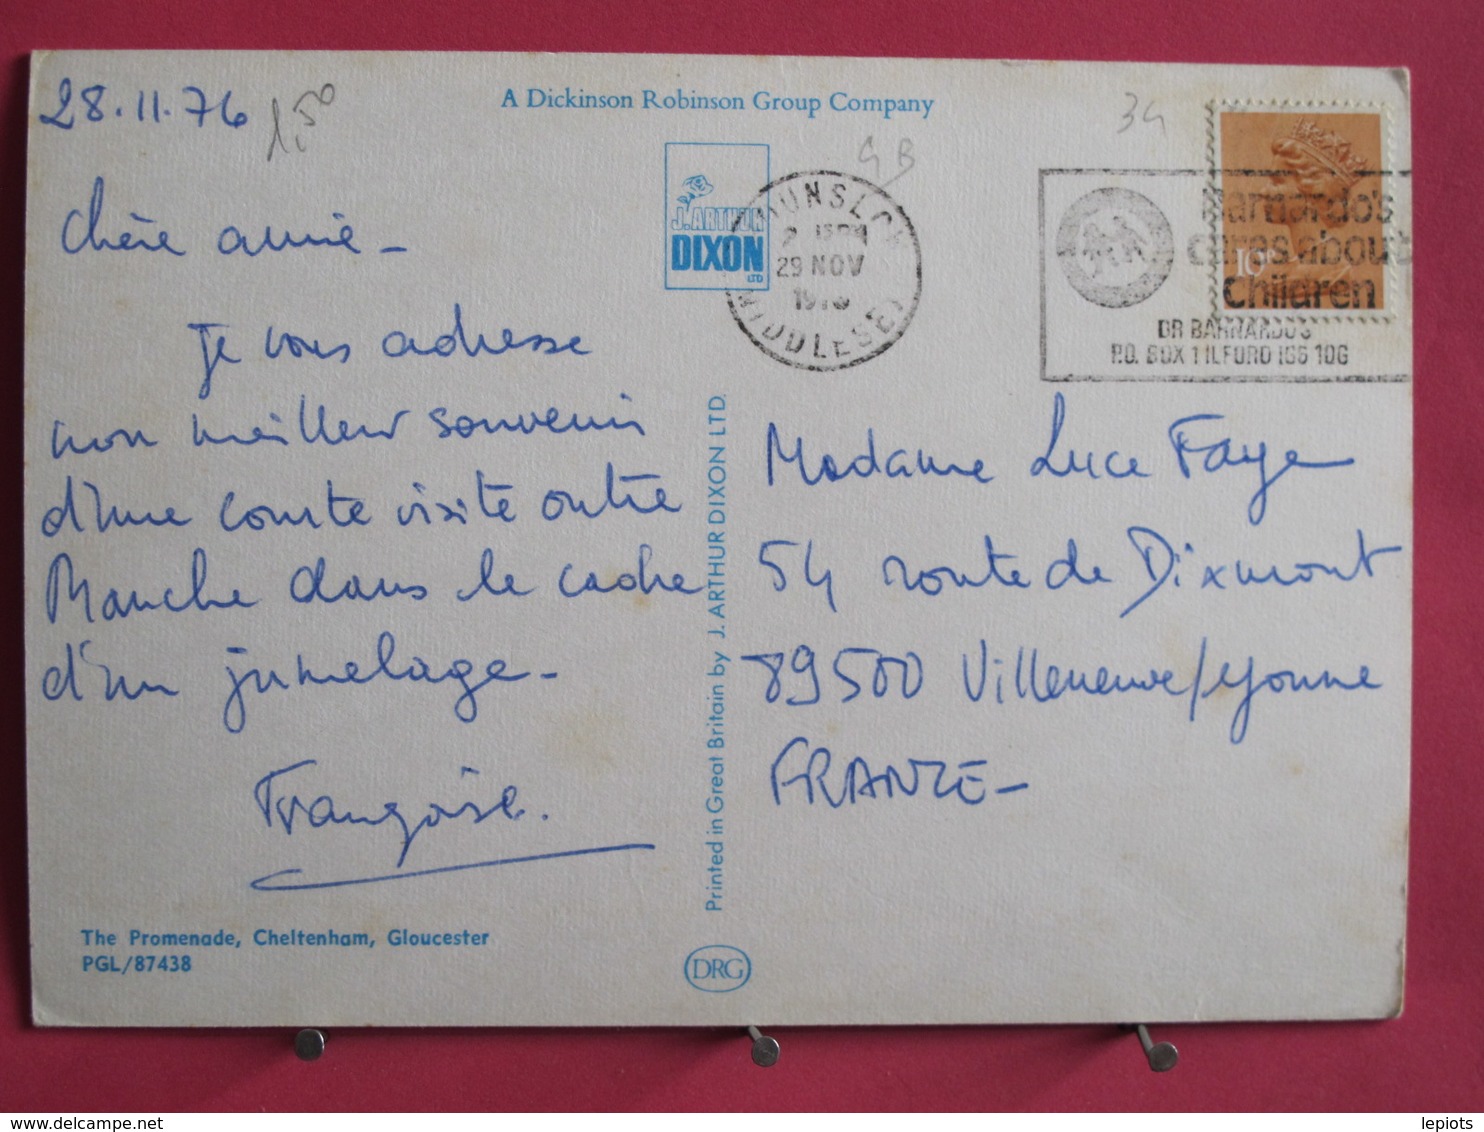 28.11.76
1,50
A Dickinson Robinson Group Company
34
GB
J.ARTHUR
DIXON
LTD
HOUNSLOW
2 PM
29 NOV
1976
MIDDLESEX
Barnardo's
cares about
Children
DR BARNARDO'S
P.O. BOX 1 ILFORD IG6 1QG
10P
Chère amie -
Je vous adresse
mon meilleur souvenir
d'une courte visite outre
Manche dans le cadre
d'un jumelage -
Françoise.
Madame Luce Faye
54 route de Dixmont
89500 Villeneuve/Yonne
FRANCE -
Printed in Great Britain by J. ARTHUR DIXON LTD.
The Promenade, Cheltenham, Gloucester
PGL/87438
DRG
lepiots